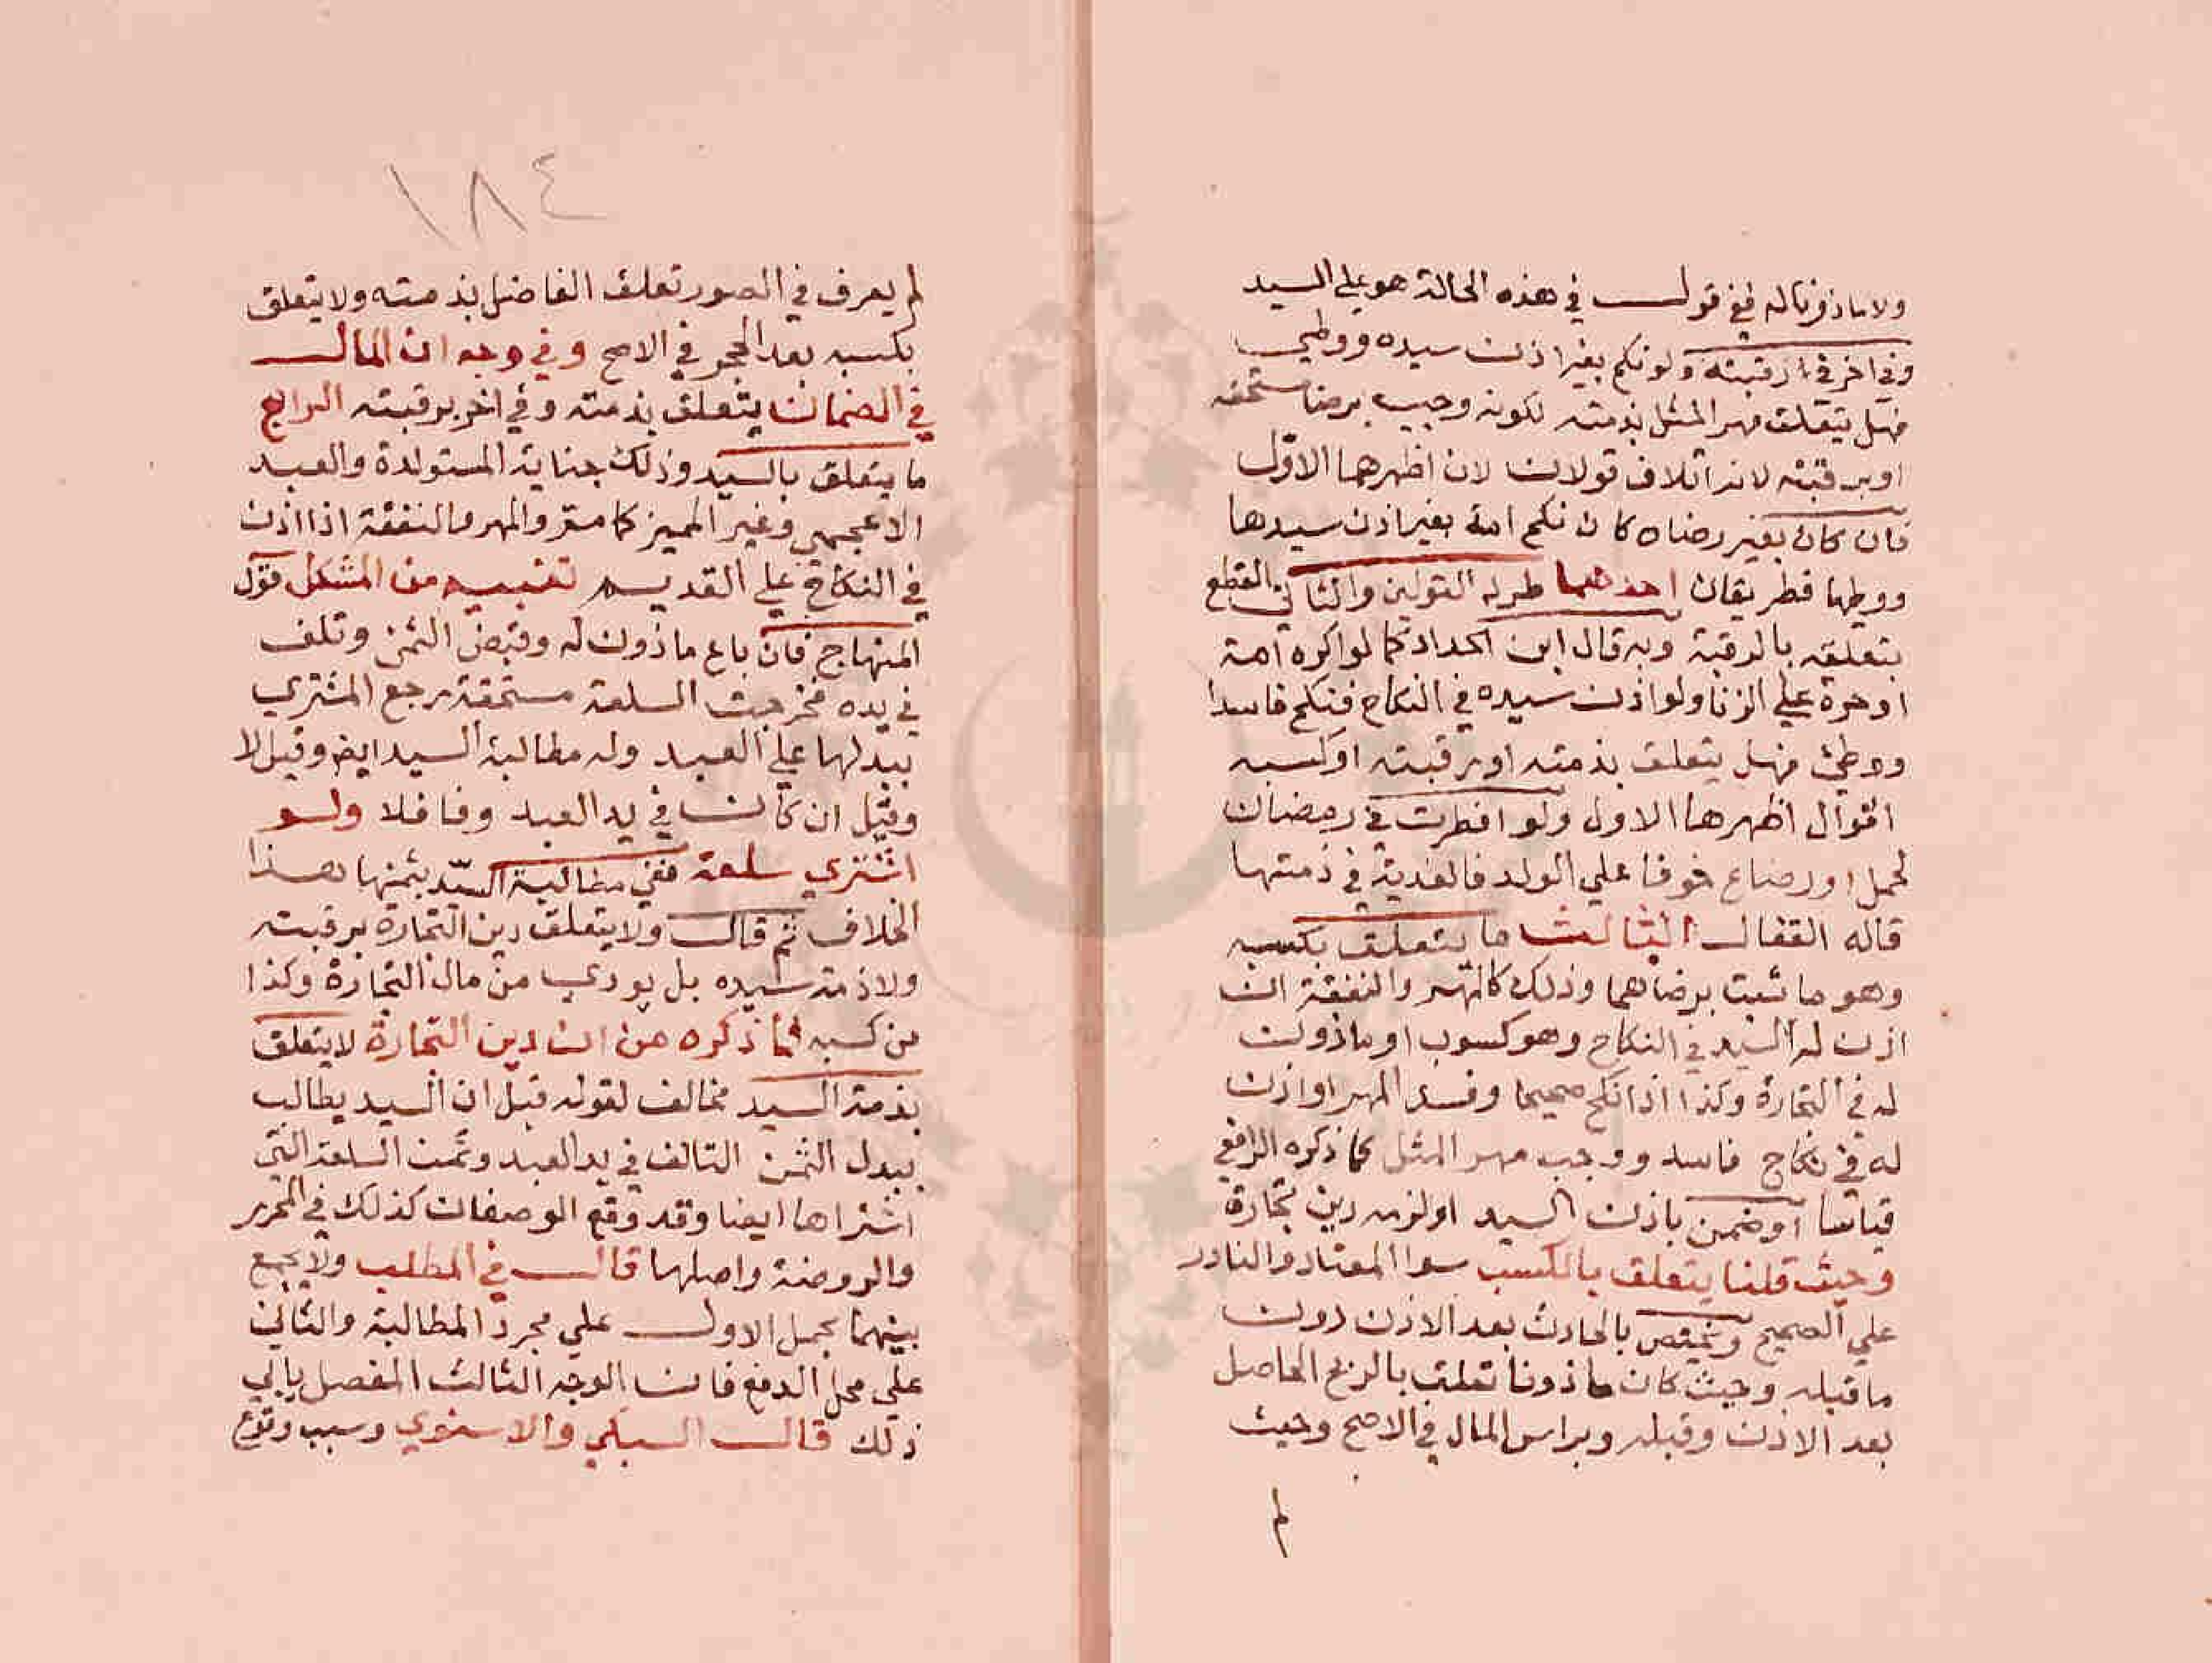 ولا ماذونا له ففي قول في هذه الحالة هو علي السيد
وفي اخر في رقبته ولو نكح بغير اذن سيده ووطي
فهل يتعلق مهر المثل بذمته لكونه وجب برضا مستحقه
او برقبته لانه اتلاف قولان لان اظهرهما الاول
فان كان بغير رضاه كان نكح امة بغير اذن سيدها
ووطها فطريقان احدهما طرد القولين والثاني القطع
بتعلقه بالرقبة وبه قال ابن الحداد كما لو اكره امة
او حرة علي الزنا ولو اذن سيده في النكاح فنكح فاسدا
ووطئ فهل يتعلق بذمته او برقبته او كسبه
اقوال اظهرها الاول ولو افطرت في رمضان
لحمل او رضاع خوفا علي الولد فالفدية في ذمتها
قاله القفال الثالث ما يتعلق بكسبه
وهو ما ثبت برضاهما وذلك كالمهر والنفقة ان
اذن له السيد في النكاح وهو كسوب او ماذون
له في التجارة وكذا اذا نكح صحيحا وفسد المهر او اذن
له في نكاح فاسد ووجب مهر المثل كما ذكره الرافعي
قياسا او ضمن باذن السيد او لزمه دين تجارة
وحيث قلنا يتعلق بالكسب سوا المعتاد والنادر
علي الصحيح ويختص بالحادث بعد الاذن دون
ما قبله وحيث كان ماذونا تعلق بالربح الحاصل
بعد الاذن وقبله وبراس المال في الاصح وحيث
لم
١٨٤
لم يعرف في الصور تعلق الفاضل بذمته ولا يتعلق
بكسبه بعد الحجر في الاصح وفي وجه ان المال
في الضمان يتعلق بذمته وفي اخر برقبته الرابع
ما يتعلق بالسيد وذلك جناية المستولدة والعبد
الاعجمي وغير المميز كما مر والمهر والنفقة اذا اذن
في النكاح علي القديم تنبيه من المشكل قول
المنهاج فان باع ماذون له وقبض الثمن وتلف
في يده فخرجت السلعة مستحقة رجع المشتري
ببدلها علي العبد وله مطالبة السيد ايض وقيل لا
وقيل ان كان في يد العبد وفا فلا ولو
اشتري سلعة ففي مطالبة السيد بثمنها هذا
الخلاف ثم قال ولا يتعلق دين التجارة برقبته
ولا ذمة سيده بل يودي من مال التجارة وكذا
من كسبه فما ذكره من ان دين التجارة لا يتعلق
بذمة السيد مخالف لقوله قبل ان السيد يطالب
ببدل الثمن التالف في يد العبد وثمن السلعة التي
اشتراها ايضا وقد وقع الوصفان كذلك في المحرر
والروضة واصلها قال في المطلب ولا يجمع
بينهما بحمل الاول علي مجرد المطالبة والثاني
علي محل الدفع فان الوجه الثالث المفصل يابي
ذلك قال السبكي والاسنوي وسبب وقوع